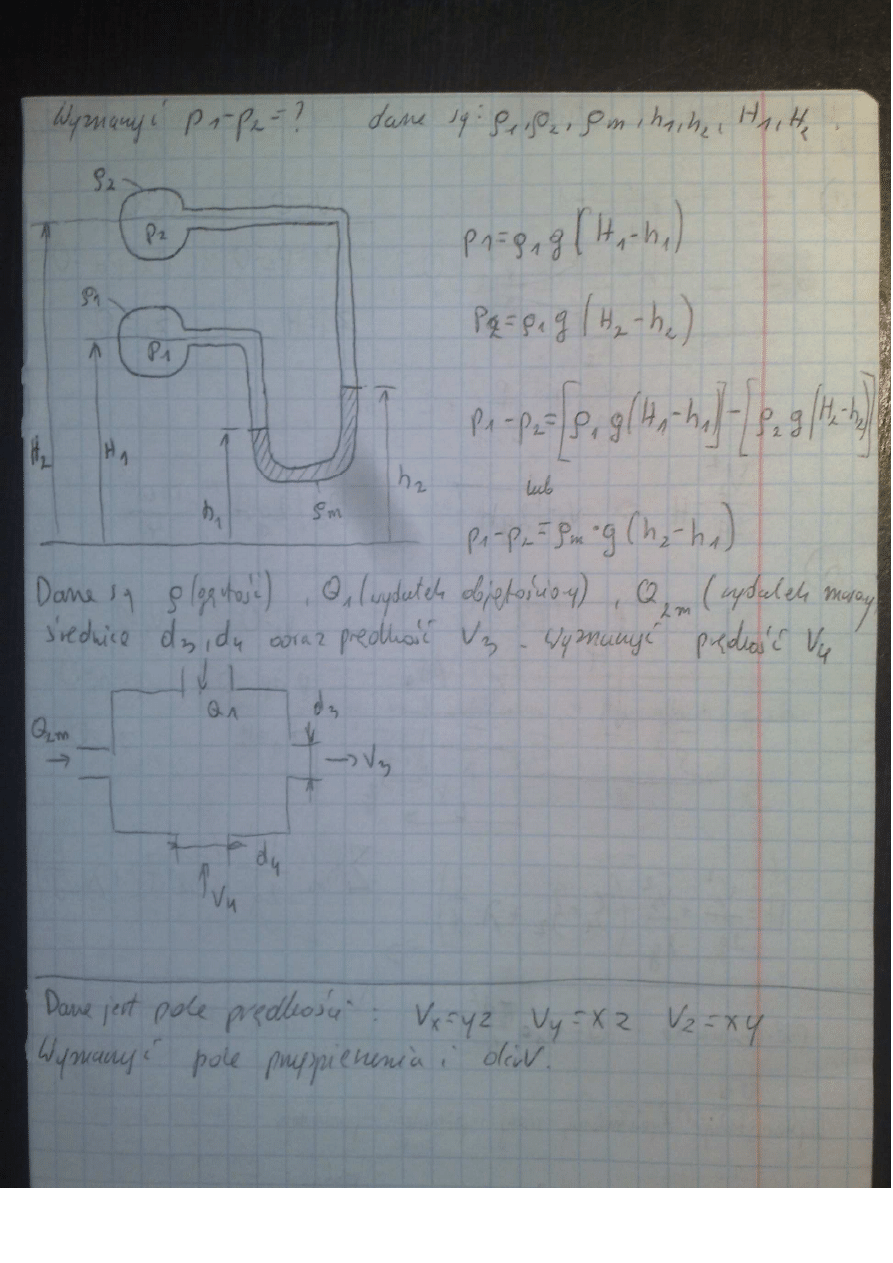 Wyznaczyć p1-p2=? dane są: ρ1, ρ2, ρm, h1, h2, H1, H2.
ρ2
p2
p1=ρ1g(H1-h1)
ρ1
p1
p2=ρ1g(H2-h2)
p1-p2=[ρ1g(H1-h1)]-[ρ2g(H2-h2)]
H2 H1 h1 ρm h2
lub
p1-p2=ρm·g(h2-h1)
Dane są ρ(gęstość), Q1(wydatek objętościowy), Q2m(wydatek masowy
średnice d3, d4 oraz prędkość V3. Wyznaczyć prędkość V4
Q1
d3
Q2m
V3
d4
V4
Dane jest pole prędkości: Vx=yz Vy=xz Vz=xy
Wyznaczyć pole przyspieszenia i divV.